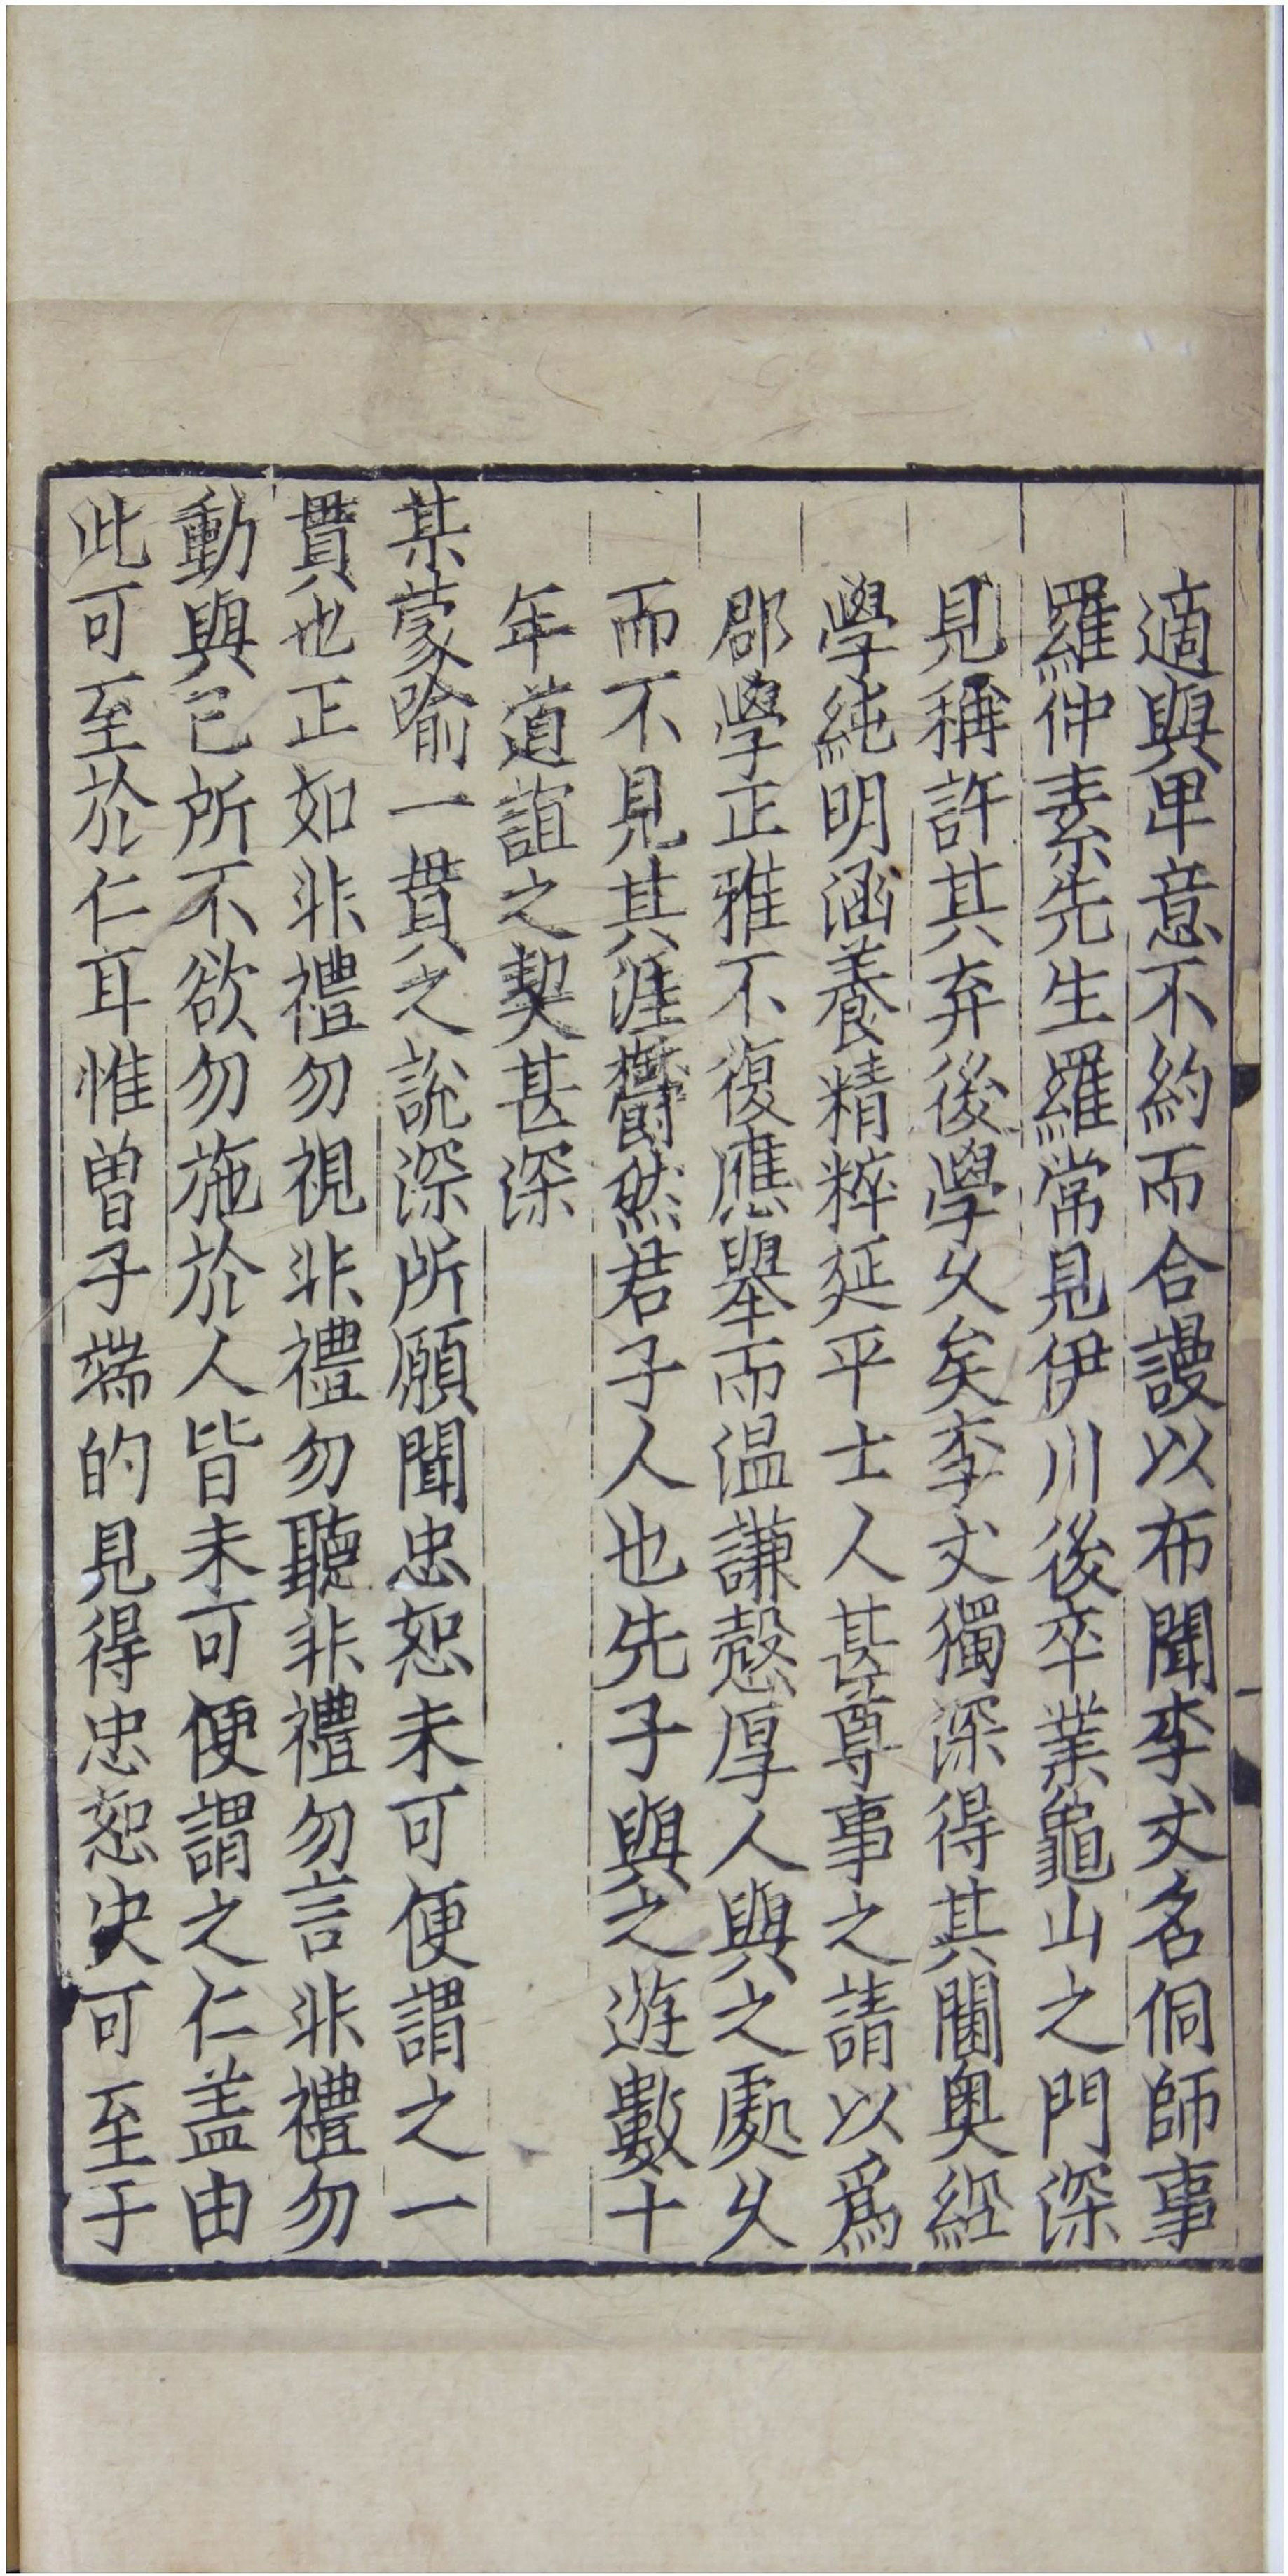 適與卑意不約而合謾以布聞李丈名侗師事
羅仲素先生羅常見伊川後卒業龜山之門深
見稱許其弃後學乆矣李丈獨深得其閫奥經
學純明涵養精粹延平士人甚尊事之請以爲
郡學正雅不復應舉而温謙慤厚人與之處乆
而不見其涯欝然君子人也先子與之遊數十
年道誼之契甚深
某蒙喻一貫之說深所願聞忠恕未可便謂之一
貫也正如非禮勿視非禮勿聽非禮勿言非禮勿
動與己所不欲勿施於人皆未可便謂之仁盖由
此可至於仁耳惟曽子端的見得忠恕决可至于